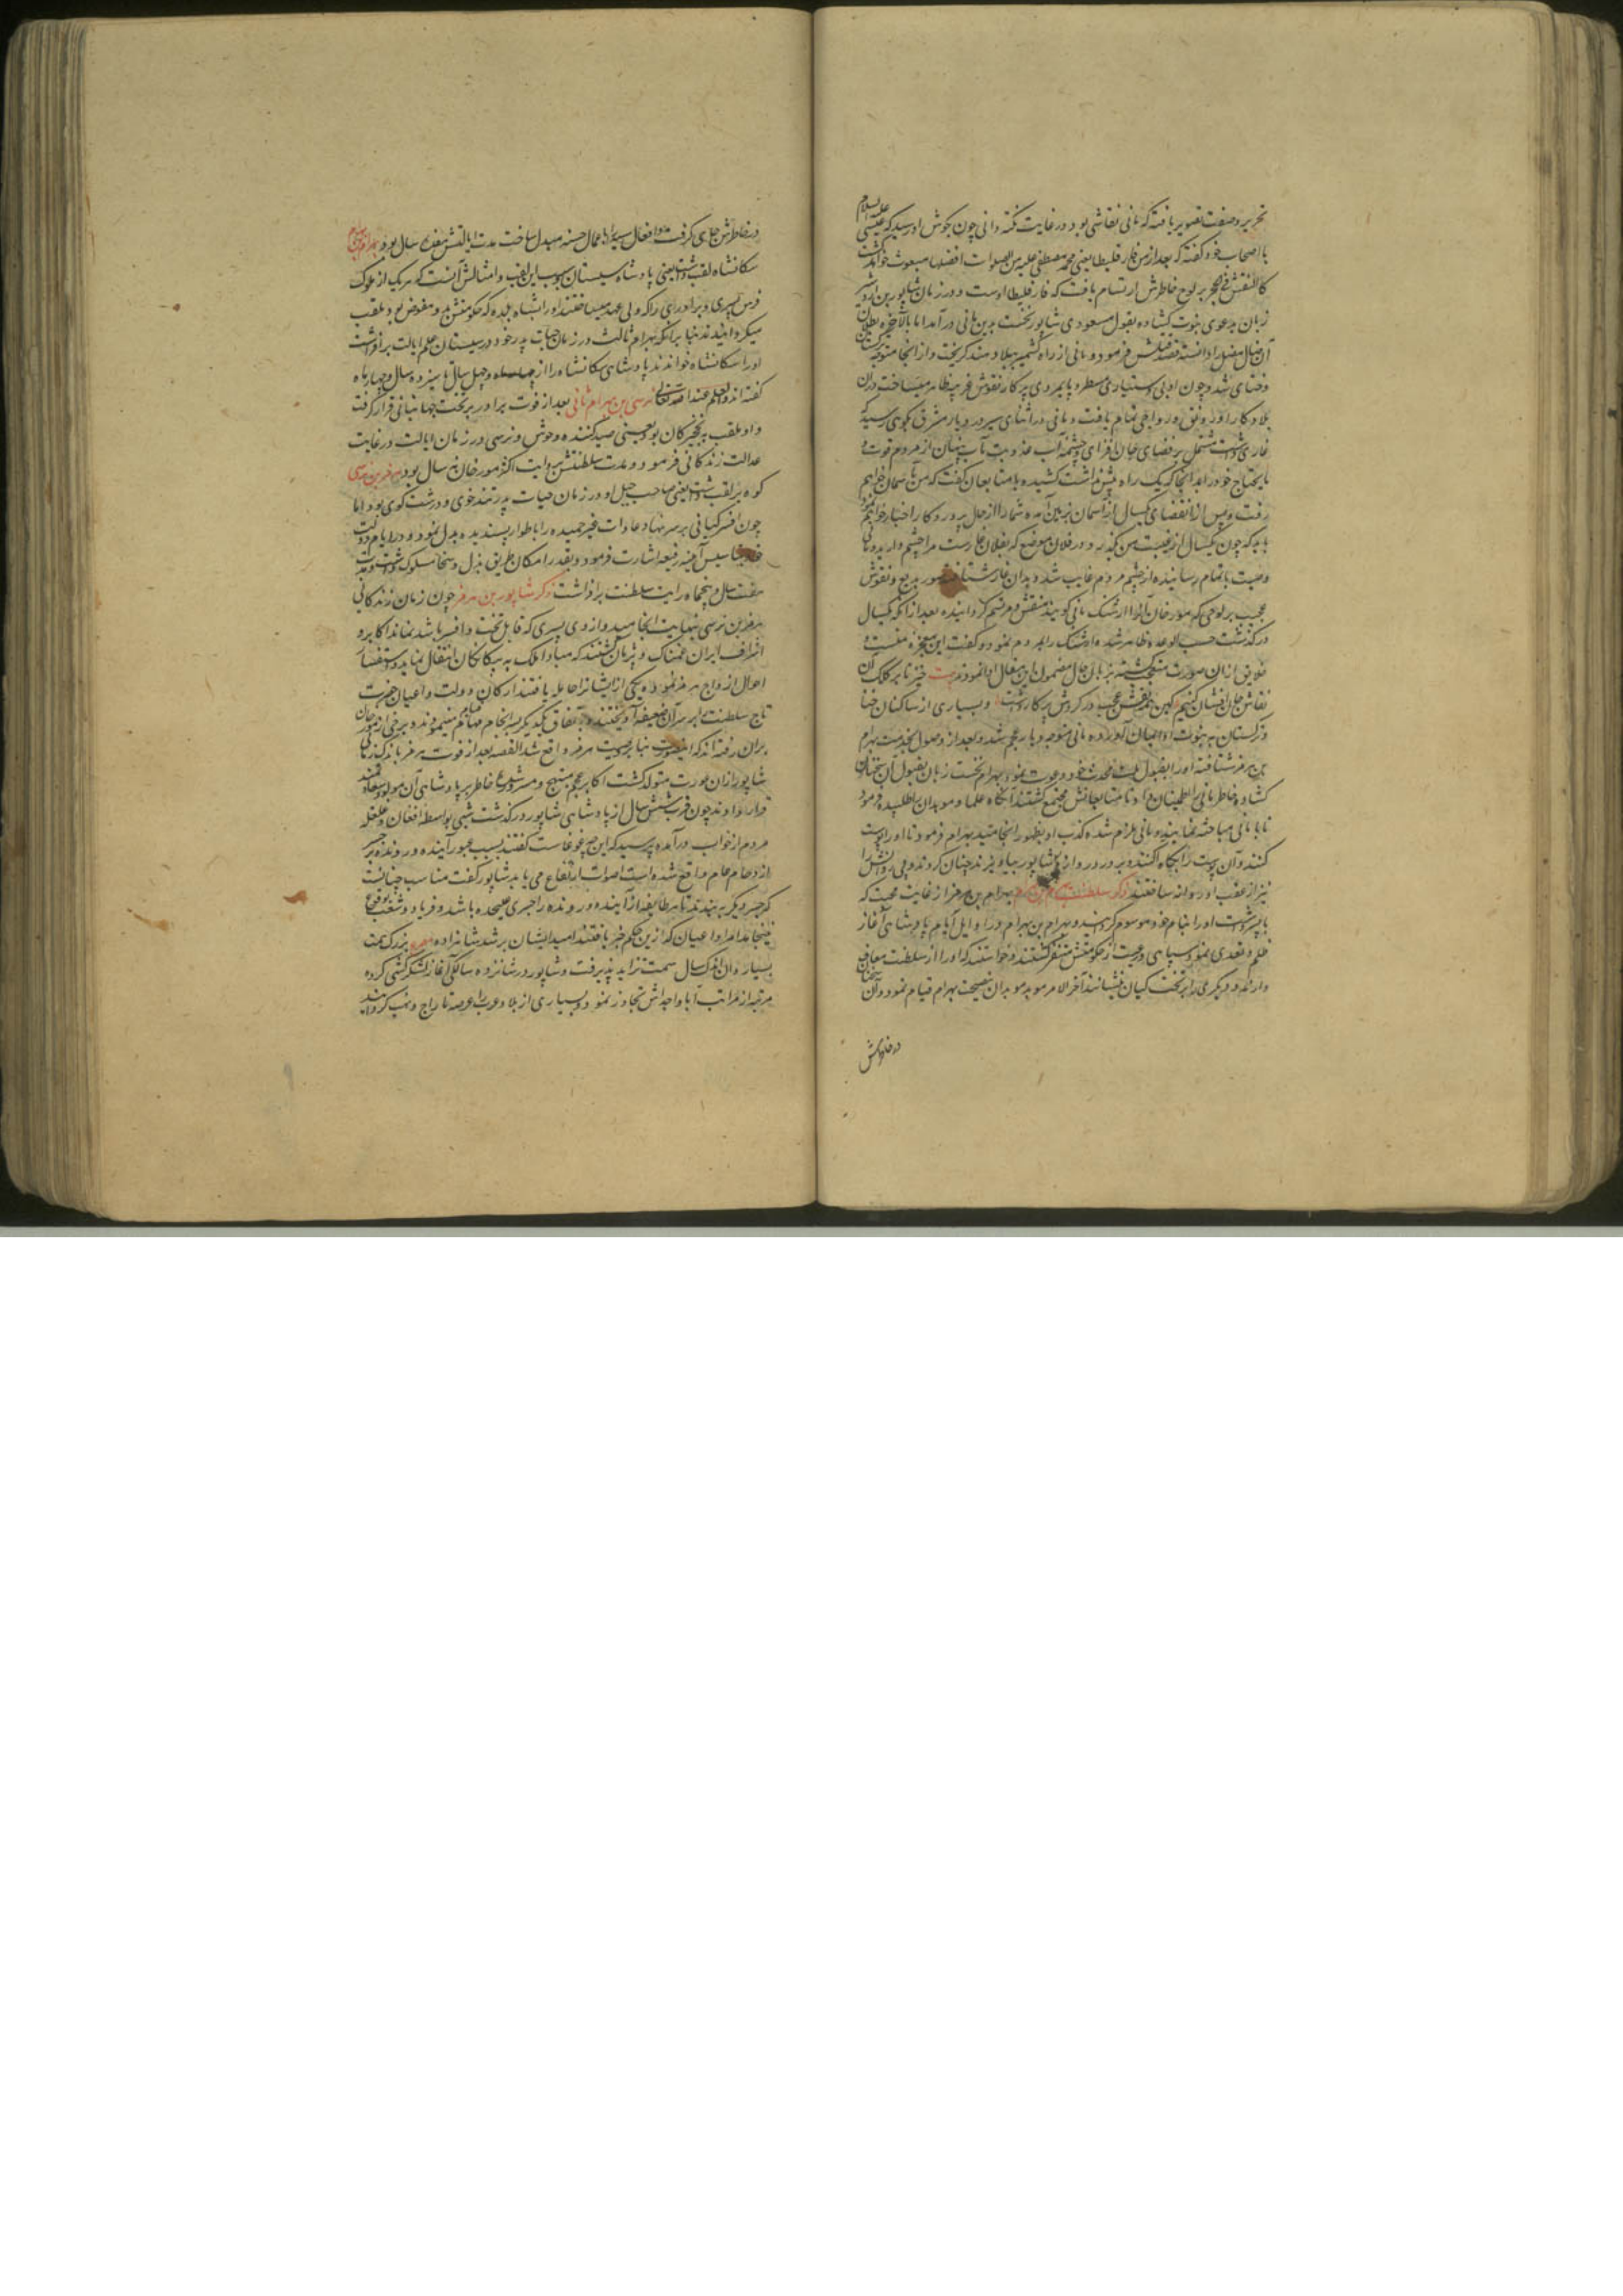 تحریر و صفت تصویر یافته که مانی نقاشی بود در غایت چون بگوش او رسید که عیسی علیه السلام
با اصحاب خود گفته که بعد از من فارقلیطا یعنی محمد مصطفی علیه من الصلوات افضلها مبعوث خواهد گشت
کالنقش فی الحجر بر لوح خاطرش ارتسام یافت که فارقلیطا اوست و در زمان شاپور بن اردشیر
زبان بدعوی نبوت گشاده بقول مسعودی شاپور نخست بدین مانی درآمد اما بالآخره بطلان
آن ضال مضل را دانسته قصد قتلش فرمود و مانی از راه کشمیر ببلاد هند گریخت و از آنجا متوجه ترکستان
و ختای شد و چون او بی دستیاری مسطر و پایمردی پرکار نقوش غریبه ظاهر میساخت در آن
بلاد کار او رونق و رواجی تمام یافت و مانی در اثنای سیر در دیار مشرق بکوهی رسید که
غاری داشت مشتمل بر فضای جان افزای و چشمه آب عذوبت مآب پنهان از مردم قوت و
مایحتاج خود را بدانجا که یک راه بیش نداشت کشیده با متابعان گفت که من بآسمان خواهم
رفت و پس از انقضای یکسال از آسمان بزمین آمده شما را از حال پروردگار اخبار خواهم نمود
باید که چون یکسال از غیبت من بگذرد در فلان موضع که بفلان غار است مرا چشم دارید و مانی
وصیت باتمام رسانیده از چشم مردم غایب شد و بدان غار شتافته صور بدیع و نقوش
عجیب بر لوحی که مورخان آنرا ارتنگ مانی گویند منقش و مرتسم گردانیده بعد از آنکه یکسال
درگذشت حسب الوعده ظاهر شده ارتنگ را بمردم نمود و گفت این معجزه منست و
خلایق از آن صورت متعجب گشته بزبان حال مضمون این مقال ادا نمودند بیت خیز تا بر کلک آن
نقاش جان افشان کنیم کین همه نقش عجب در گردش پرکار داشت و بسیاری از ساکنان ختا
و ترکستان به نبوت او ایمان آورده مانی متوجه دیار عجم شد و بعد از وصول بخدمت بهرام
بن هرمز شتافته او را بقبول ملت محدث خود دعوت نمود و بهرام نخست زبان بقبول آن سخنان
گشاده خاطر مانی را اطمینان داد تا متابعانش مجتمع گشتند آنگاه علما و موبدان را طلبیده فرمود
تا با مانی مباحثه نمایند و مانی ملزم شده کذب او بظهور انجامید بهرام فرمود تا او را پوست
کنند و آن پوست را بکاه آکنده بر در دروازه شاپور بیاویزند چنان کردند و پیروانش را
نیز از عقب او روانه ساختند ذکر سلطنت بهرام بن بهرام بهرام بن هرمز از غایت محبت که
با پسر داشت او را بنام خود موسوم گردانید و بهرام بن بهرام در اوایل ایام پادشاهی آغاز
ظلم و تعدی نمود و سپاهی و رعیت از حکومتش متنفر گشتند و خواستند که او را از سلطنت معاف
دارند و دیگری را بر تخت کیان نشانند آخر الامر موبد موبدان بنصیحت بهرام قیام نمود و آن سخنان
در خاطرش
در خاطرش جای گرفت و افعال سیئه را باعمال حسنه مبدل ساخت مدت ایالتش هفده سال بود بهرام بن بهرام
سکانشاه لقب داشت یعنی پادشاه سیستان و سبب این لقب و امثالش آنست که هر یک از ملوک
فرس پسری و برادری را که ولی عهد میساختند او را بشاه بلده که حکومتش بدو مفوض بود ملقب
میگردانیدند بنا بر آنکه بهرام ثالث در زمان حیات پدر خود در سیستان علم ایالت برافراشت
او را سکانشاه خواندند پادشاهی سکانشاه را از چهار ماه و چهل سال تا سیزده سال و چهار ماه
گفته اند و العلم عند الله تعالی نرسی بن بهرام ثانی بعد از فوت برادر بر تخت جهانبانی قرار گرفت
و او ملقب به نخجیرکان بود یعنی صید کننده وحوش و نرسی در زمان ایالت در غایت
عدالت زندگانی فرمود و مدت سلطنتش بروایت اکثر مورخان نه سال بود هرمز بن نرسی
کوه بر لقب داشت یعنی صاحب جبل او در زمان حیات پدر تندخوی و درشت گوی بود اما
چون افسر کیانی بر سر نهاد عادات غیر حمیده را باطوار پسندیده بدل نمود و در ایام دولت
خود بتاسیس ابنیه رفیعه اشارت فرمود و بقدر امکان طریق بذل و سخا مسلوک داشت و مدت
هفت سال و پنجماه رایت سلطنت برافراشت ذکر شاپور بن هرمز چون زمان زندگانی
هرمز بن نرسی بنهایت انجامید و از وی پسری که قابل تخت و افسر باشد نماند اکابر و
اشراف ایران غمناک و پریشان گشتند که مبادا ملک به بیگانگان انتقال نماید و استفسار
احوال ازواج هرمز نموده یکی از ایشان را حامله یافتند ارکان دولت و اعیان حضرت
تاج سلطنت بر سر آن ضعیفه آویختند و باتفاق یکدیگر بسرانجام مهام قیام مینمودند و برخی از مورخان
بر آن رفته اند که اینصورت بنابر وصیت هرمز واقع شد القصه بعد از فوت هرمز باندک زمانی
شاپور از آن عورت متولد گشت اکابر عجم مبتهج و مسرور شده خاطر بر پادشاهی آن مولود سعادتمند
قرار دادند چون قرب شش سال از پادشاهی شاپور درگذشت شبی بواسطه افغان و غلغله
مردم از خواب درآمده پرسید که این چه غوغاست گفتند بسبب عبور آینده و رونده بر جسر
ازدحام عام واقع شده است اصوات ارتفاع می یابد شاپور گفت مناسب چنانست
که جسر دیگر ببندند تا هر طایفه از آینده و رونده را جسری علیحده باشد و فریاد و شغب بوقوع
نینجامد امرا و اعیان که ازین حکم خبر یافتند امید ایشان برشد شاهزاده بزرگ همت
بسیار دان اندک سال سمت تزاید پذیرفت و شاپور در شانزده سالگی آغاز لشکرکشی کرده
مرتبه از مراتب آبا و اجدادش تجاوز نمود و بسیاری از بلاد عرب را عرصه تاراج و نهب گردانید